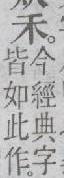 禾。
今經典字
皆如此作。